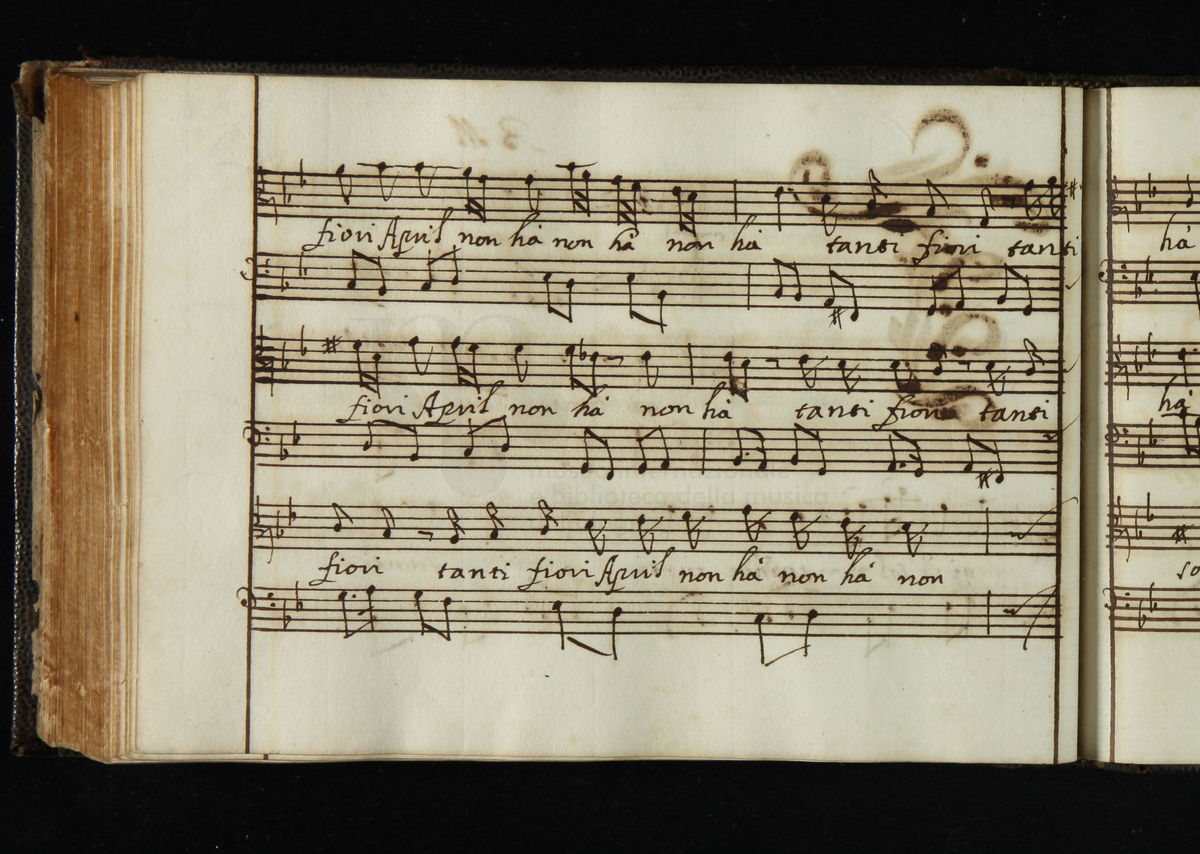 fiori April non hà non hà non hà tanti fiori tanti
hà
fiori April non hà non hà tanti fiori tanti
hà
museo internazionale
e biblioteca della musica
fiori tanti fiori April non hà non hà non
so